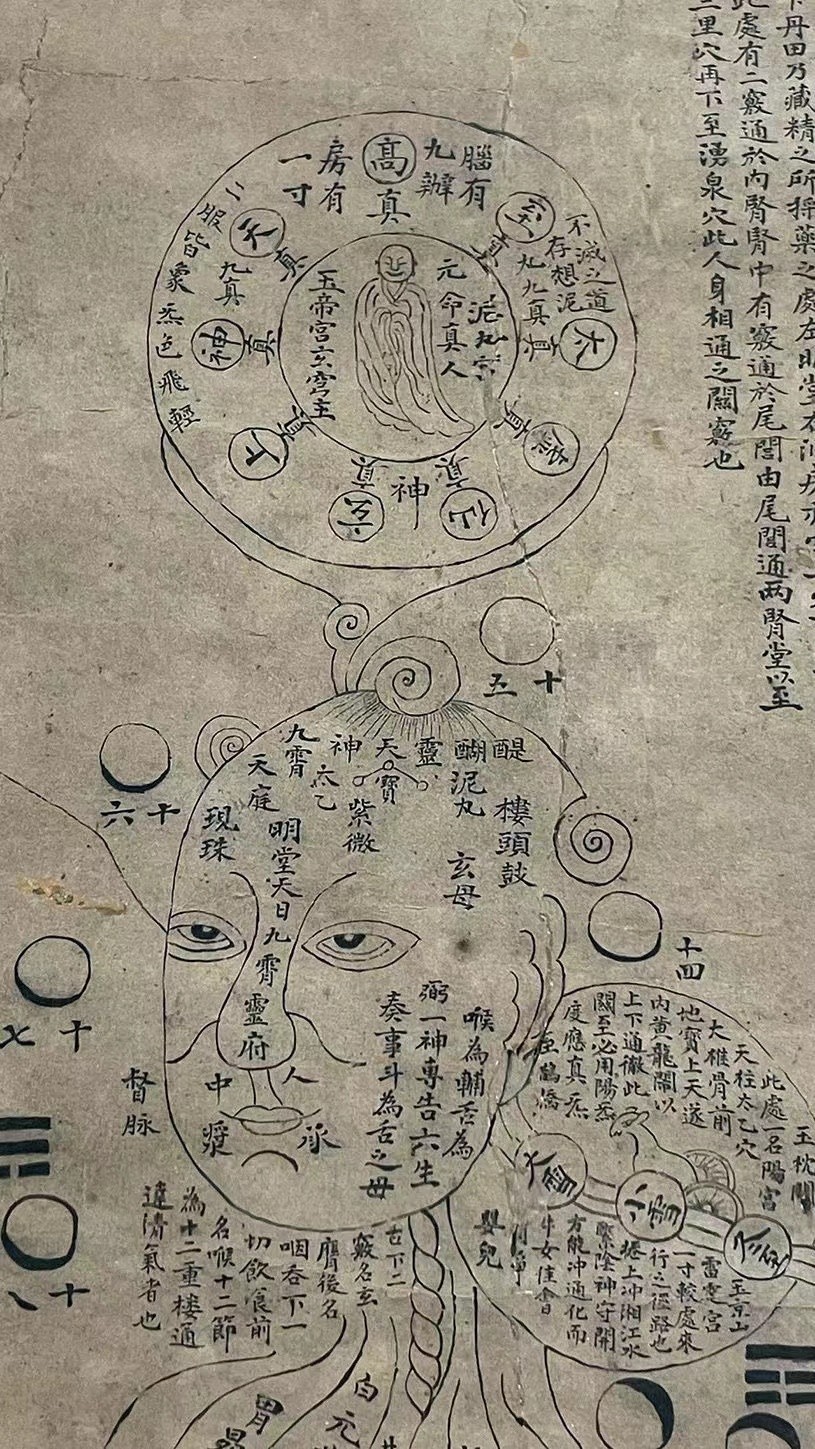 下丹田乃藏精之所採藥之處左明堂右洞房亦
此處有二竅通於內腎腎中有竅通於尾閭由尾閭通兩腎堂以至
三里穴再下至湧泉穴此人身相通之關竅也
腦有
九瓣
高真
房有
一寸
二服皆象炁色飛輕
不滅之道
存想泥
丸九真
九真
天真
神真
上真
玄真
神
仙真
太真
泥丸宮
元命真人
玉帝宮玄穹主
十五
十六
十四
十七
十八
醍醐
靈
天寶
神
九霄
太乙
天庭
泥丸
紫微
樓頭鼓
玄母
現珠
明堂天日九霄靈府
喉為輔舌為
弼一神專告六生
奏事斗為舌之母
人中
承漿
督脉
玉枕關
此處一名陽宮
天柱太乙穴
大椎骨前
地寶上天遂
內黃龍關以
上下通徹此
關至必用陽炁
度應真炁
至鵲橋
大雪
小雪
玉京山
雷霆宮
一寸較處來
行之徑路也
捲上冲湘江水
聚陰神守開
方能冲通化而
牛女佳會
嬰兒
舌下二
竅名玄
膺後名
咽吞下一
切飲食前
名喉十二節
為十二重樓通
達清氣者也
白元
胃